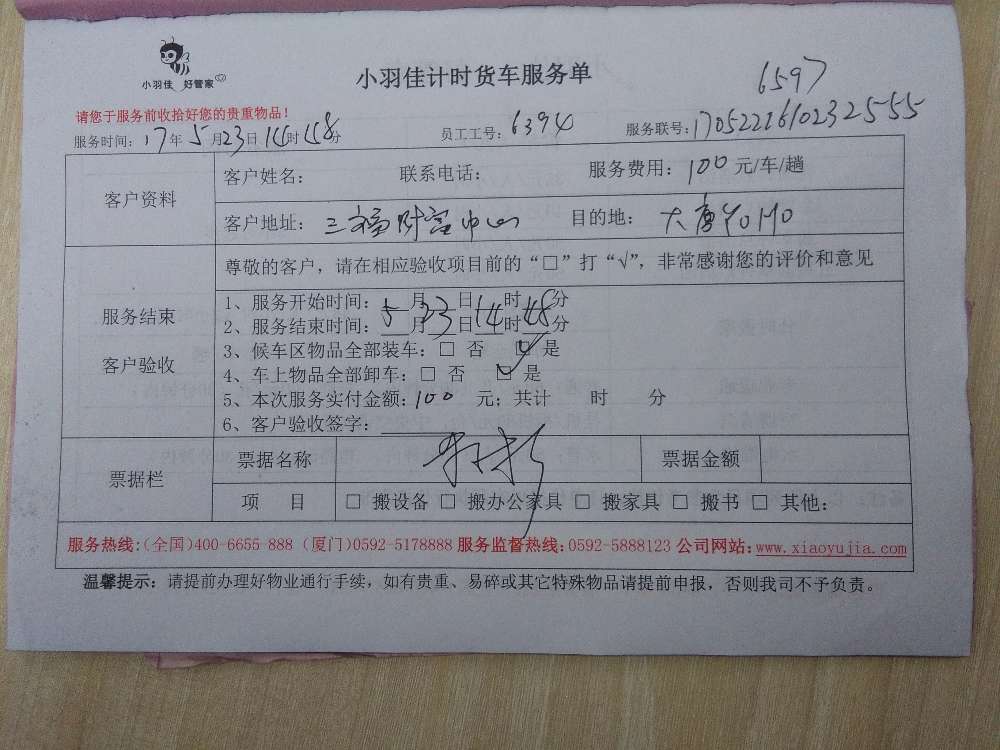 小羽佳 好管家
小羽佳计时货车服务单
6597
请您于服务前收拾好您的贵重物品！
服务时间：17年5月23日14时58分 员工工号：6394 服务联号：1705222610232555
客户资料
客户姓名： 联系电话： 服务费用：100元/车/趟
客户地址：三福财富中心 目的地：大唐YOHO
服务结束
客户验收
尊敬的客户，请在相应验收项目前的“□”打“√”，非常感谢您的评价和意见
1、服务开始时间： 月 日 时 分
2、服务结束时间：5月23日14时48分
3、候车区物品全部装车：□ 否 □ 是
4、车上物品全部卸车：□ 否 □ 是
5、本次服务实付金额：100 元；共计 时 分
6、客户验收签字：
票据栏
票据名称 票据金额
项 目 □ 搬设备 □ 搬办公家具 □ 搬家具 □ 搬书 □ 其他：
服务热线：(全国)400-6655 888 (厦门)0592-5178888 服务监督热线：0592-5888123 公司网站：www.xiaoyujia.com
温馨提示：请提前办理好物业通行手续，如有贵重、易碎或其它特殊物品请提前申报，否则我司不予负责。